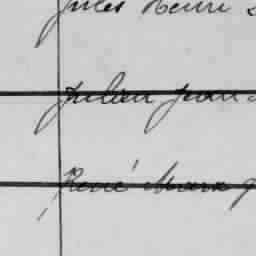 Jules Henri
Julien Jean
René Marx